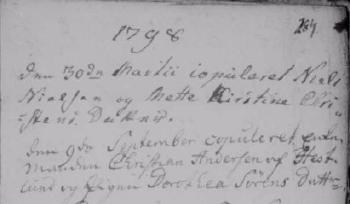 284
1798
den 30de Martii copuleret Niels
Nielsen og Mette Kirstine Chri-
stens Datter.
den 9de September copuleret enke
manden Christian Andersen af Hest-
lund og Pigen Dorothea Sörens Datter